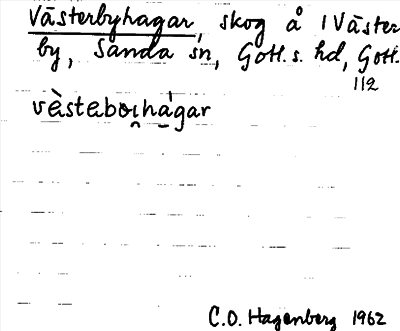 Västerbyhagar, skog å 1 Väster
by, Sanda sn, Gotl. s. hd, Gotl.
112
vàsteboıhágar
C.O. Hagenberg 1962